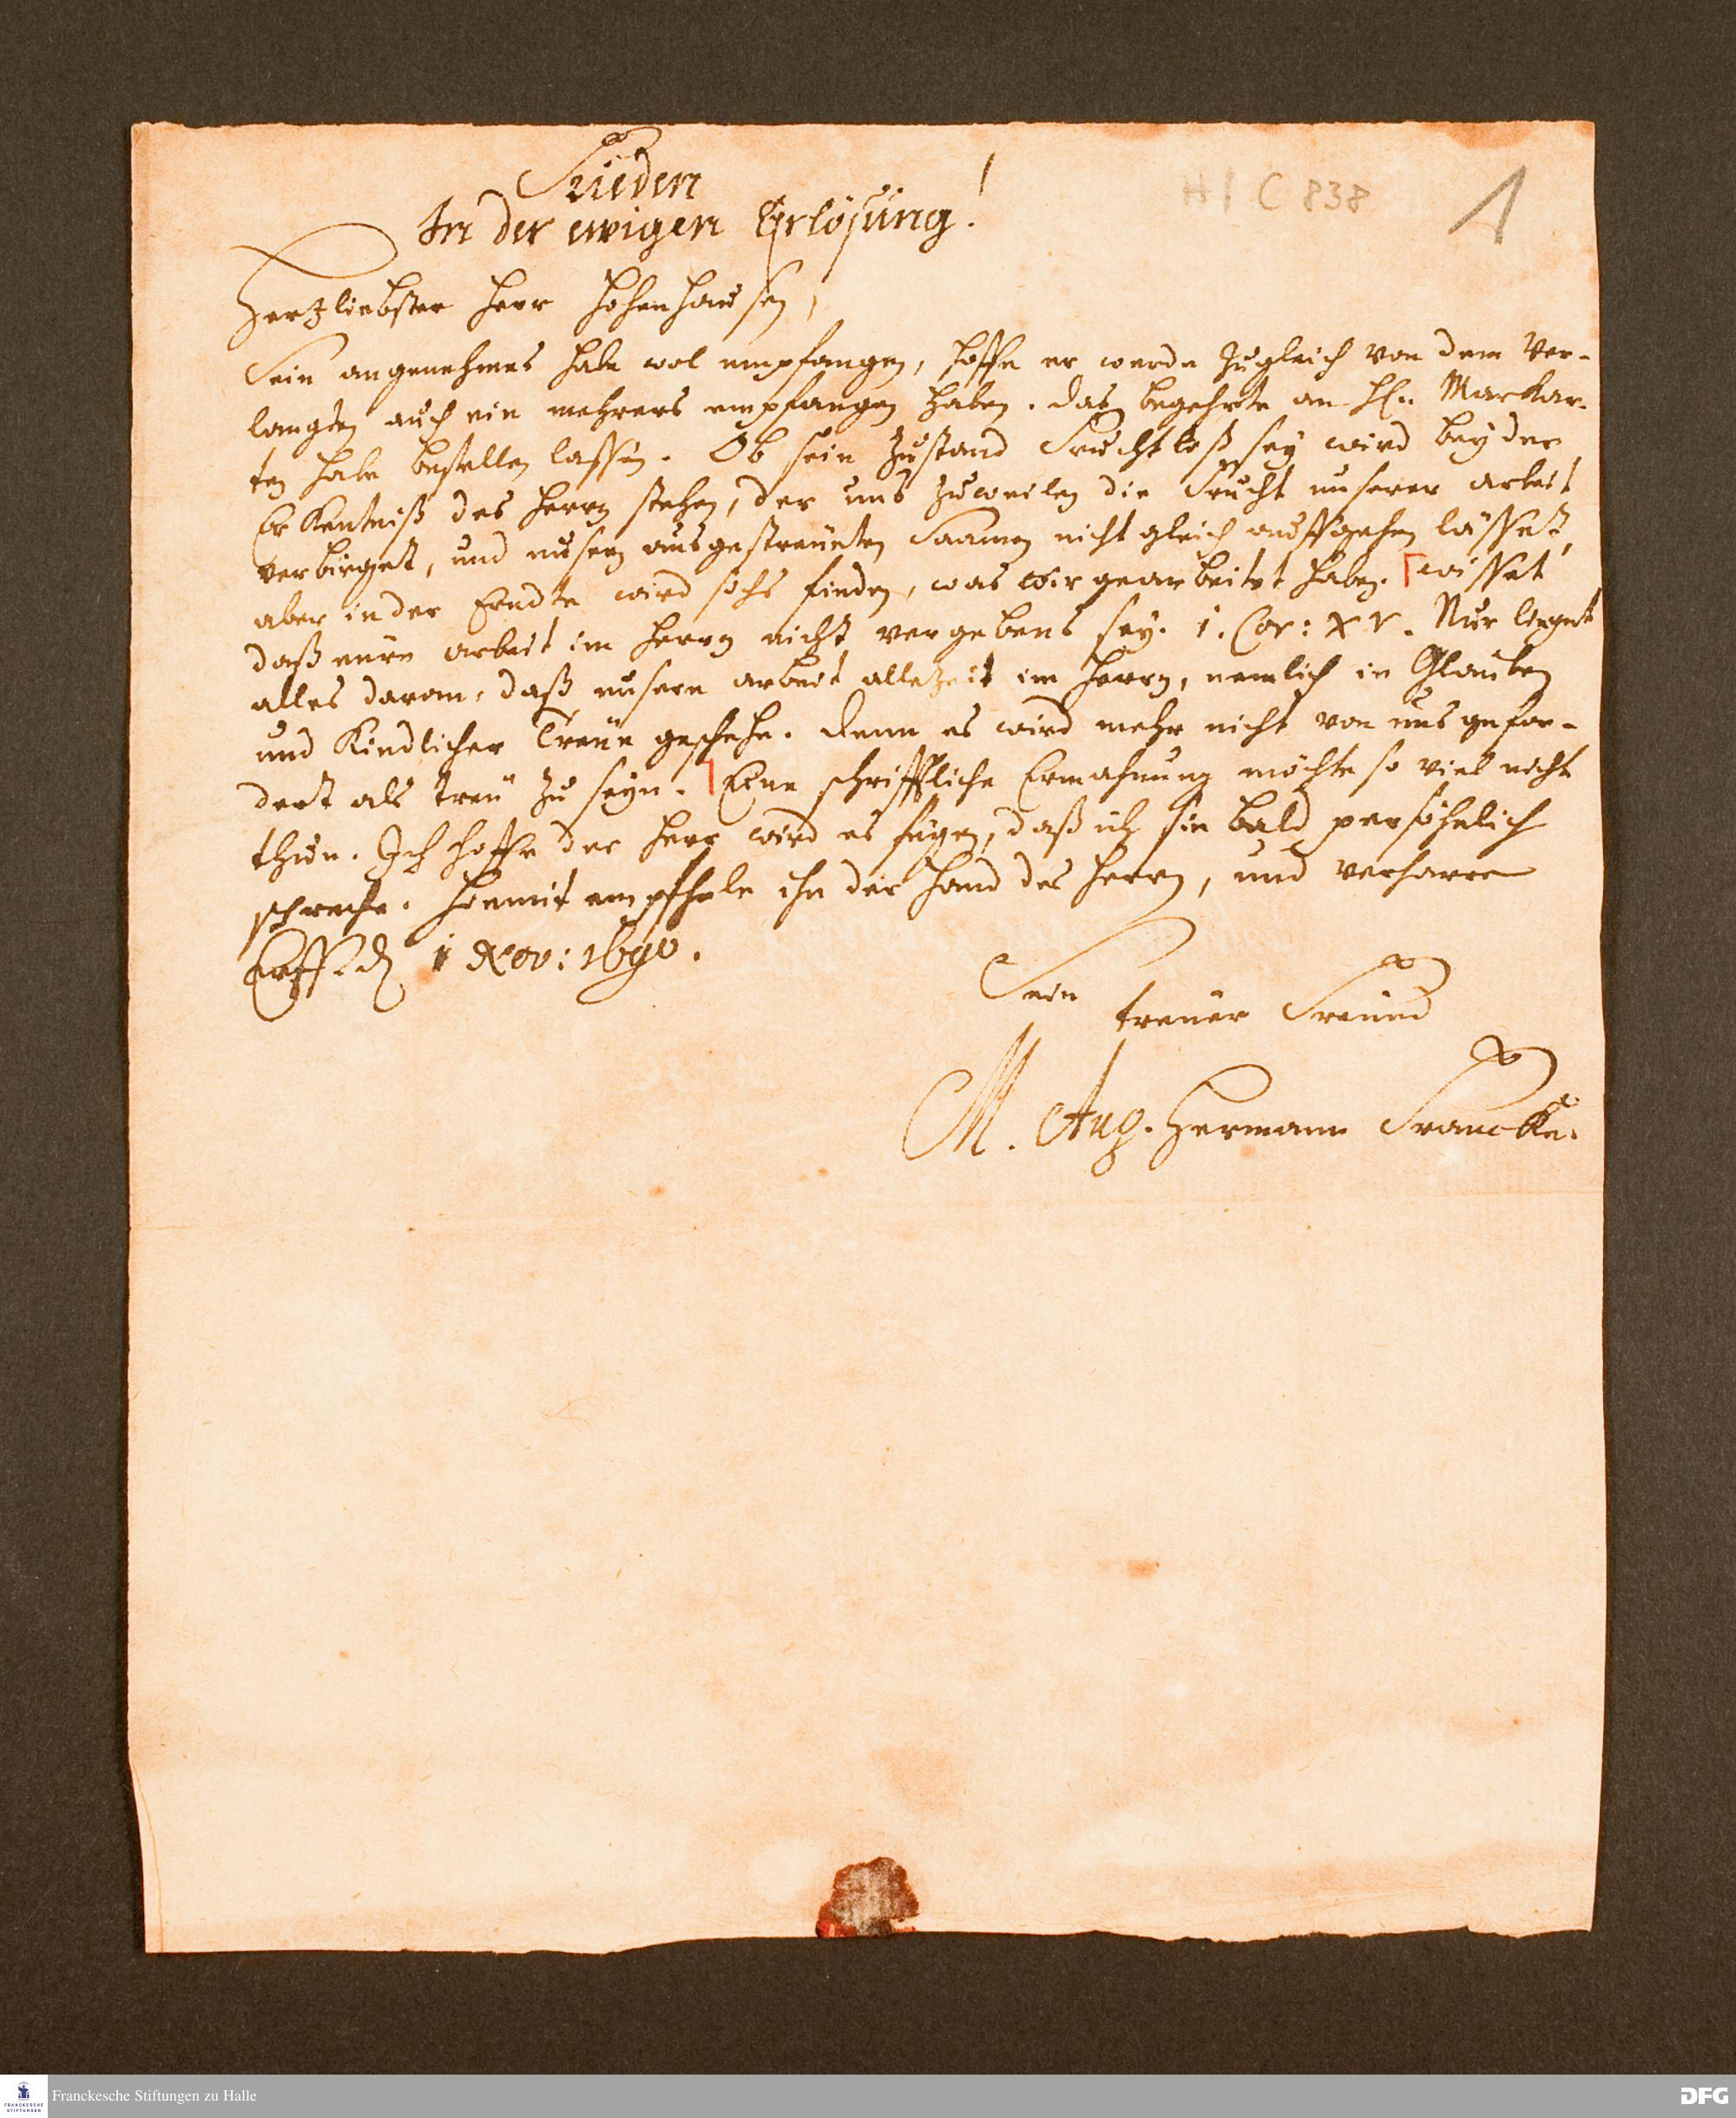 Frieden
In der ewigen Erlösung!
H1 C 838
1
Hertzliebster Herr Hohenhausen,
Sein angenehmes habe wol empfangen, hoffe er werde zugleich von dem Ver-
langten auch ein mehrers empfangen haben. das begehrte an H. Markar-
ten habe bestellen lassen. Ob sein Zustand Fruchtloß sey wird bey der
Erkentniß des Herrn stehen, der uns zuweilen die Frucht unserer arbeit
verbirget, und unsern ausgestreueten Saamen nicht gleich auffgehen lässet,
aber in der Erndte wird sichs finden, was wir gearbeitet haben. wisset
daß eure arbeit im Herrn nicht vergebens sey. 1. Cor: XV. Nur lieget
alles daran, daß unsere arbeit allezeit im Herrn, nemlich in Glauben
und Kindlicher Treue geschehe. denn es wird mehr nicht von uns gefor-
dert als treu zu seyn. Eine schrifftliche Ermahnung möchte so viel nicht
thun. Ich hoffe der Herr wird es fügen, daß ich sie bald persöhnlich
spreche. Hiemit empfehle ihn der Hand des Herrn, und verharre
Erff. d. 1 Nov: 1690.
Sein
treuer Freund
M. Aug. Hermann Francke.
Franckesche Stiftungen zu Halle
FRANCKESCHE
STIFTUNGEN
DFG